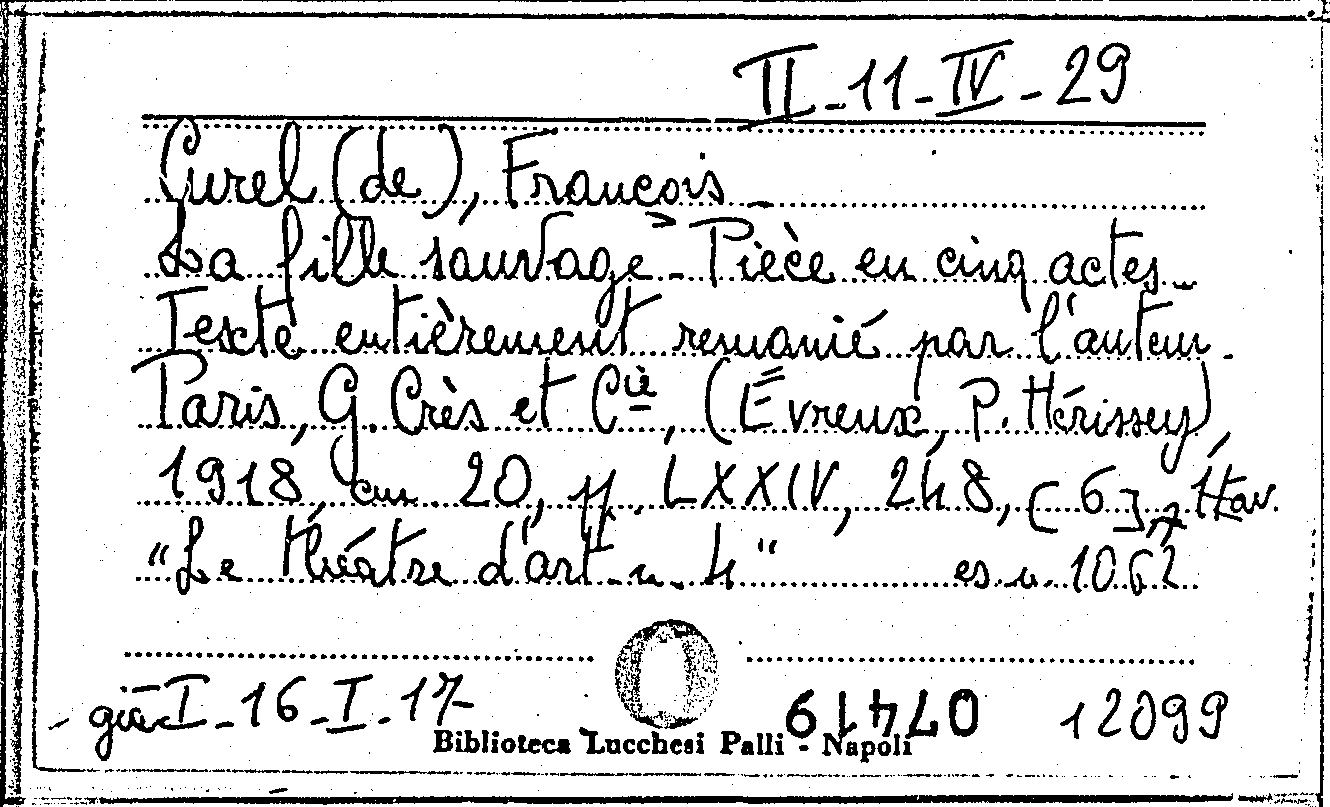 II-11-IV-29
Curel (de), François -
La fille sauvage - Pièce en cinq actes -
Texte entièrement remanié par l'auteur -
Paris, G. Crès et Cie, (Évreux, P. Hérissey),
1918, cm 20, pp. LXXIV, 248, [6], 1 tav.
"Le théâtre d'art - n. 4" es. n. 1062
- già I-16-I-17
07419 12099
Biblioteca Lucchesi Palli - Napoli